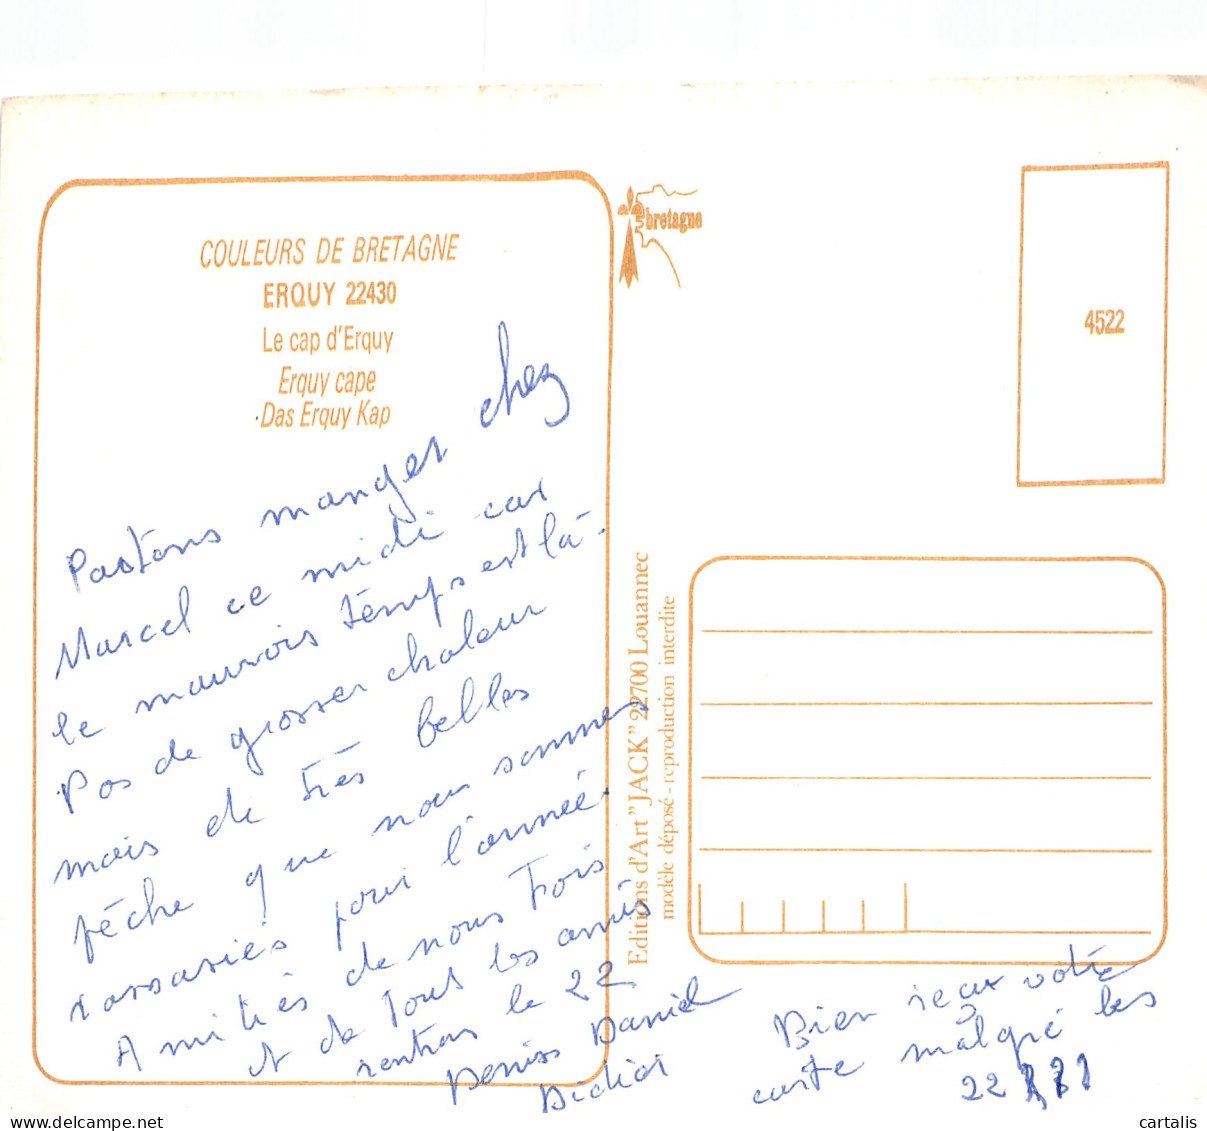 COULEURS DE BRETAGNE
ERQUY 22430
Le cap d'Erquy
Erquy cape
Das Erquy Kap
bretagne
4522
Editions d'Art "JACK" 22700 Louannec
modèle déposé - reproduction interdite
Partons manger chez
Marcel ce midi car
le mauvais temps est là.
Pas de grosses chaleur
mais de très belles
pêche que nous sommes
rassasiés pour l'année.
Amitiés de nous Trois
et de tout les amis
rentrons le 22
Denise Daniel
Didier
Bien reçu votre
carte malgré les
22
cartalis